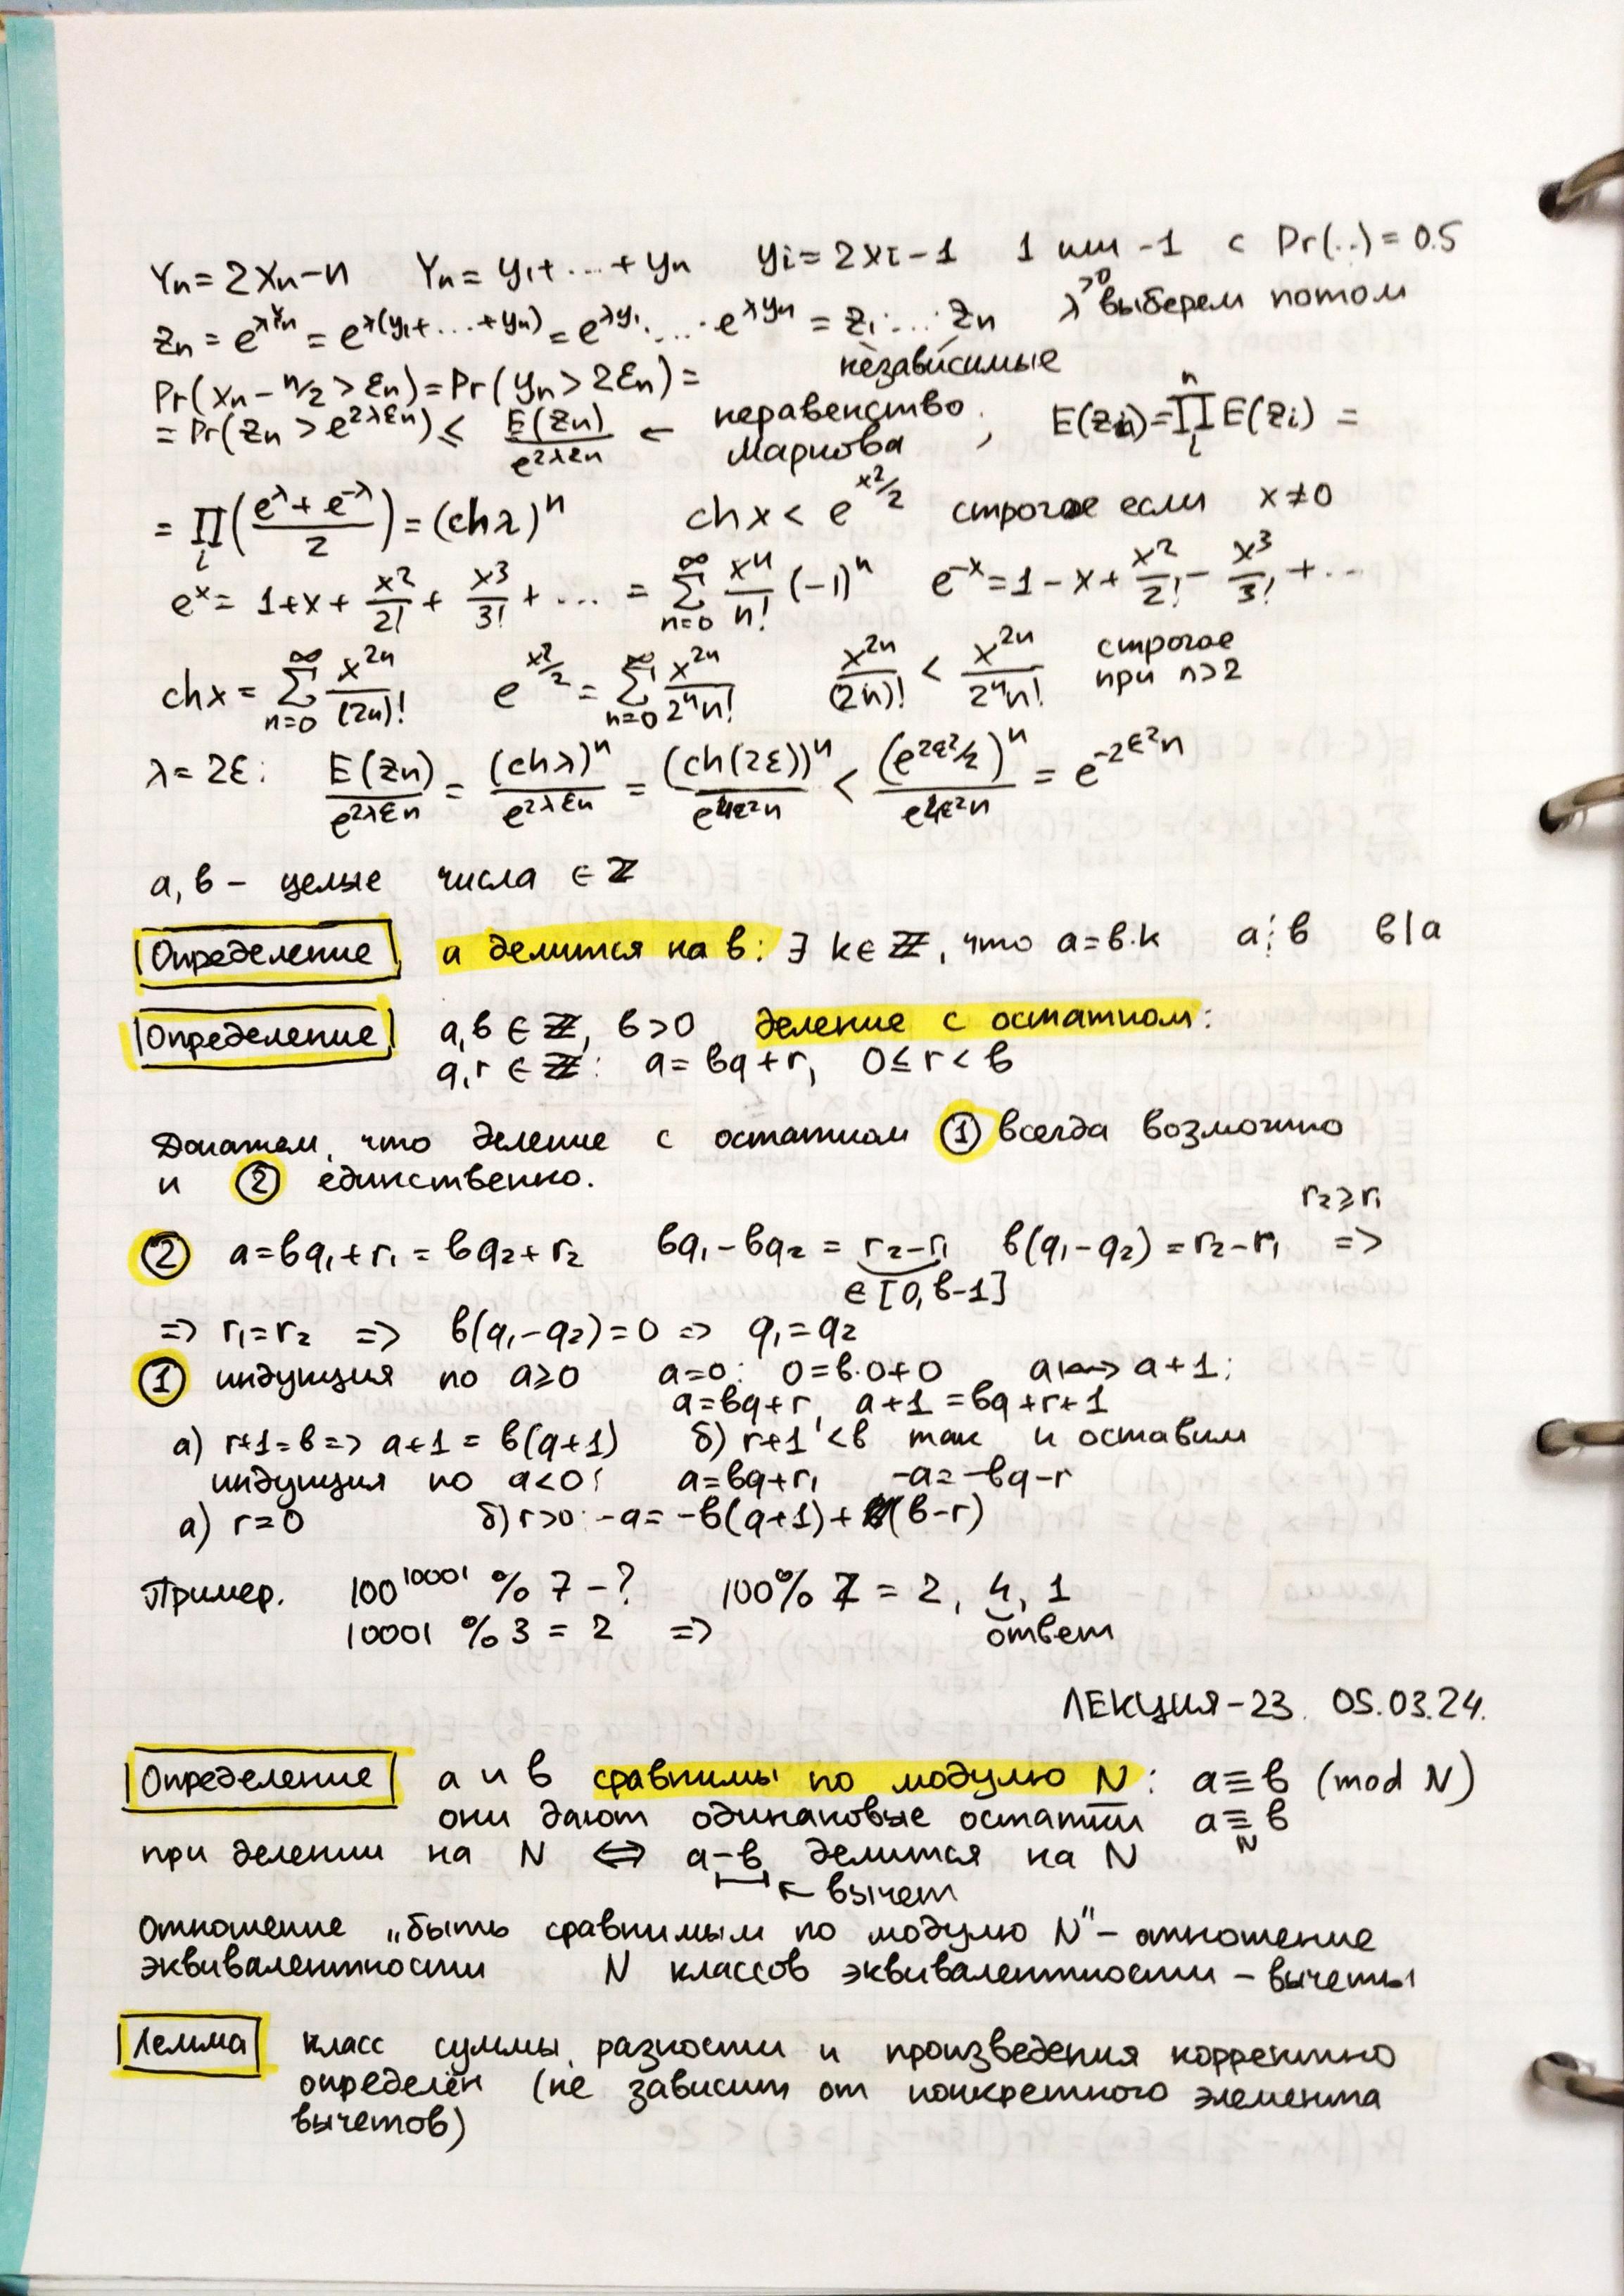 Yn = 2Xn - n   Yn = y₁ + ... + yn   yi = 2xi - 1   1 или -1 с Pr(..) = 0.5
Zn = e^{λYn} = e^{λ(y₁+...+yn)} = e^{λy₁} · ... · e^{λyn} = z₁ · ... · zn   λ>0 выберем потом
независимые
Pr(Xn - n/2 > εn) = Pr(Yn > 2εn) =
= Pr(Zn > e^{2λεn}) ≤ E(Zn)/e^{2λεn} ← неравенство Маркова, E(Zn) = ∏_i^n E(zi) =
= ∏_i ((e^λ + e^{-λ})/2) = (ch λ)^n   ch x < e^{x²/2} строгое если x ≠ 0
e^x = 1 + x + x²/2! + x³/3! + ... = ∑_{n=0}^∞ x^n/n! (-1)^n   e^{-x} = 1 - x + x²/2! - x³/3! + ...
ch x = ∑_{n=0}^∞ x^{2n}/(2n)!   e^{x²/2} = ∑_{n=0}^∞ x^{2n}/(2^n n!)   x^{2n}/(2n)! < x^{2n}/(2^n n!) строгое при n>2
λ = 2ε: E(Zn)/e^{2λεn} = (ch λ)^n/e^{2λεn} = (ch(2ε))^n/e^{4ε²n} < (e^{2ε²/2})^n/e^{4ε²n} = e^{-2ε²n}
a, b - целые числа ∈ ℤ
Определение a делится на b: ∃ k ∈ ℤ, что a = b·k   a⋮b   b|a
Определение a, b ∈ ℤ, b > 0 деление с остатком:
q, r ∈ ℤ: a = bq + r, 0 ≤ r < b
Докажем, что деление с остатком ① всегда возможно
и ② единственно.
② a = bq₁ + r₁ = bq₂ + r₂   bq₁ - bq₂ = r₂ - r₁   b(q₁ - q₂) = r₂ - r₁   r₂ ≥ r₁ =>
∈ [0, b-1]
=> r₁ = r₂ => b(q₁ - q₂) = 0 => q₁ = q₂
① индукция по a ≥ 0   a = 0: 0 = b·0 + 0   a ↦ a + 1:
a = bq + r, a + 1 = bq + r + 1
а) r+1 = b => a+1 = b(q+1)   б) r+1 < b так и оставим
индукция по a < 0:   a = bq + r,   -a = -bq - r
а) r = 0   б) r > 0: -a = -b(q+1) + (b-r)
Пример. 100^{10001} % 7 - ?   100 % 7 = 2, 4, 1
10001 % 3 = 2 =>   ответ
ЛЕКЦИЯ-23. 05.03.24.
Определение a и b сравнимы по модулю N: a ≡ b (mod N)
они дают одинаковые остатки a ≡_N b
при делении на N ⟺ a - b делится на N
← вычет
Отношение „быть сравнимым по модулю N" - отношение
эквивалентности   N классов эквивалентности - вычеты
Лемма класс суммы, разности и произведения корректно
определён (не зависит от конкретного элемента
вычетов)